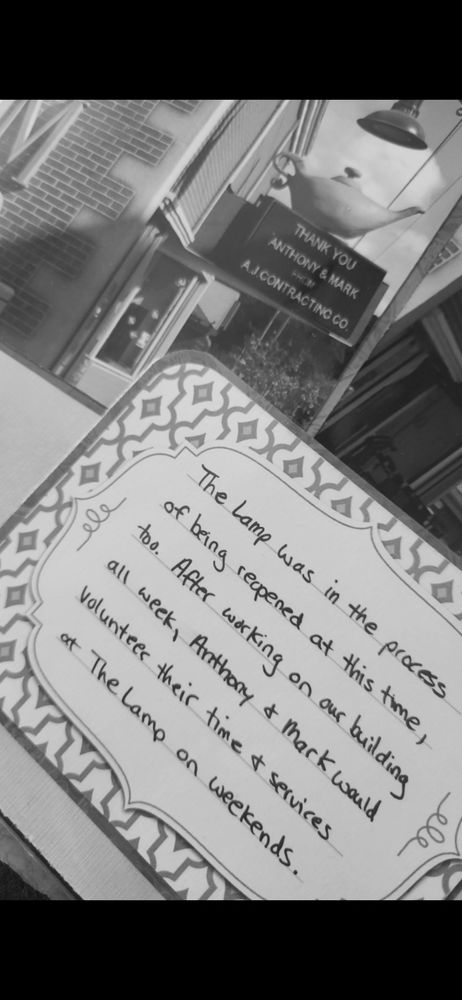 THANK YOU
ANTHONY & MARK
FROM
A.J CONTRACTING CO.
The Lamp was in the process
of being reopened at this time,
too. After working on our building
all week, Anthony & Mark would
volunteer their time & services
at The Lamp on weekends.